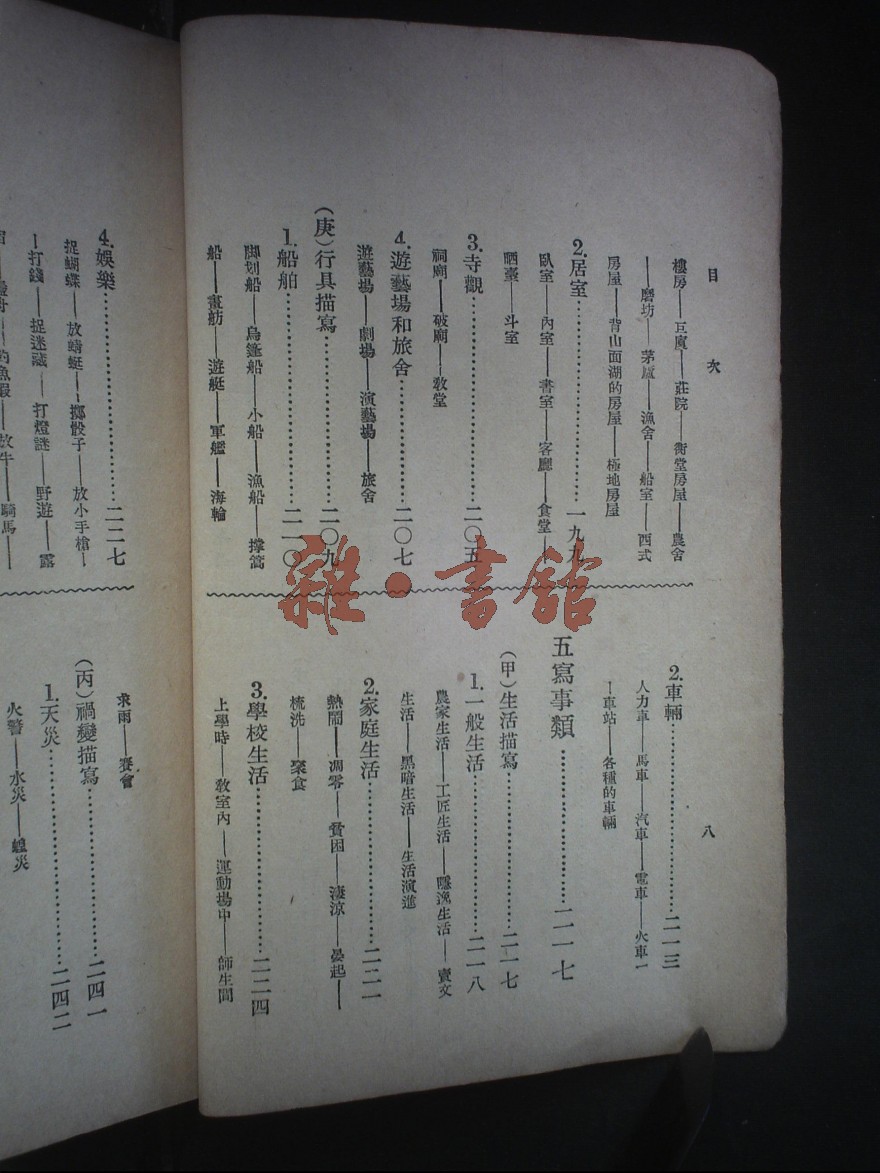 目次
八
樓房——巨廈——莊院——衖堂房屋——農舍
——磨坊——茅廬——漁舍——船室——西式
房屋——背山面湖的房屋——極地房屋
2.居室……一九九
臥室——內室——書室——客廳——食堂——
晒臺——斗室
3.寺觀……二〇五
祠廟——破廟——教堂
4.遊藝場和旅舍……二〇七
遊藝場——劇場——演藝場——旅舍
（庚）行具描寫……二〇九
1.船舶……二一〇
脚划船——烏篷船——小船——漁船——撐篙
船——畫舫——遊艇——軍艦——海輪
2.車輛……二一三
人力車——馬車——汽車——電車——火車—
—車站——各種的車輛
五寫事類……二一七
（甲）生活描寫……二一七
1.一般生活……二一八
農家生活——工匠生活——隱逸生活——賣文
生活——黑暗生活——生活演進
2.家庭生活……二二一
熱鬧——凋零——貧困——淒涼——晏起——
梳洗——聚食
3.學校生活……二二四
上學時——教室內——運動場中——師生間
4.娛樂……二二七
捉蝴蝶——放蜻蜓——擲骰子——放小手槍——
—打錢——捉迷藏——打燈謎——野遊——露
釣魚蝦——放牛——騎馬——
求雨——賽會
（丙）禍變描寫……二四一
1.天災……二四二
火警——水災——蝗災
雜·書館